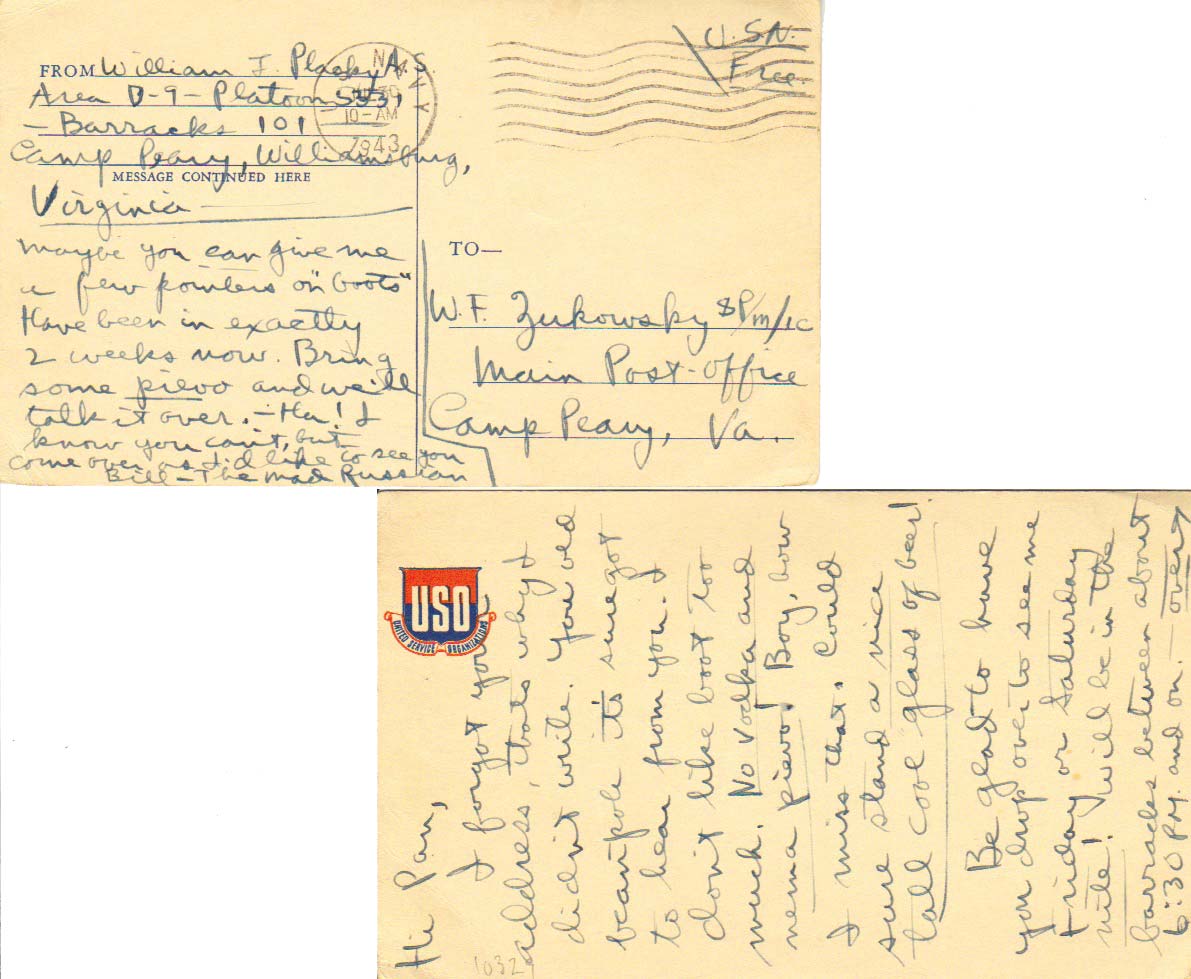 FROM William J. Placky A.S.
Area D-9 - Platoon 5531
- Barracks 101
Camp Peary, Williamsburg,
MESSAGE CONTINUED HERE
Virginia
maybe you can give me
a few pointers on "boots"
Have been in exactly
2 weeks now. Bring
some pievo and we'll
talk it over. - Ha! I
know you can't, but
come over as I'd like to see you
Bill - The mad Russian
N.Y.
30
10-AM
1943
U.S.N.
Free.
TO—
W.F. Zukowsky SP/m/1c
Main Post-office
Camp Peary, Va.
USO
UNITED SERVICE ORGANIZATIONS
Hi Pan,
I forgot your
address, thats why I
didn't write. You old
beanpole it's sure got
to hear from you. I
don't like boot too
much. No Vodka and
nema pievo! Boy, how
I miss that. Could
sure stand a nice
tall cool glass of beer!
Be glad to have
you drop over to see me
Friday or Saturday
nite! Will be in the
barracks between about
6:30 P.M. and on. - over
1032